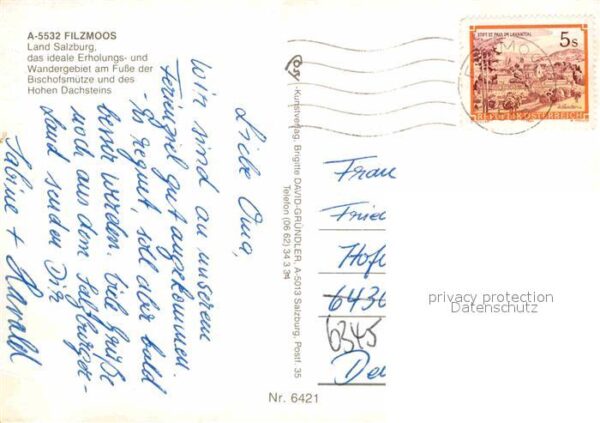 A-5532 FILZMOOS
Land Salzburg,
das ideale Erholungs- und
Wandergebiet am Fuße der
Bischofsmütze und des
Hohen Dachsteins
Liebe Oma,
wir sind an unserem
Ferienziel gut angekommen.
Es regnet, soll aber bald
besser werden. Viele Grüße
noch aus dem Salzburger-
Land senden Dir
Sabine + Harald
Kunstverlag, Brigitte DAVID-GRÜNDLER, A-5013 Salzburg, Postf. 35
Telefon (06 62) 34 3 34
STIFT ST. PAUL IM LAVANTTAL
5 s
REPUBLIK ÖSTERREICH
Frau
Fried
Hofe
6436
6345
De
privacy protection
Datenschutz
Nr. 6421